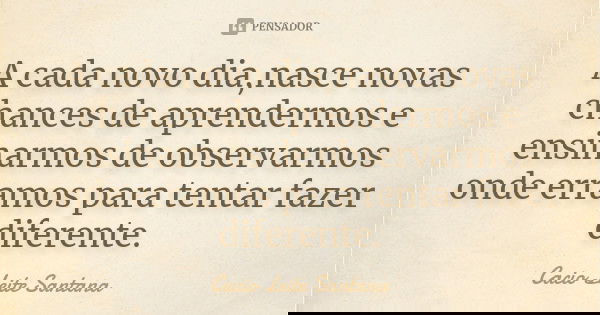 PENSADOR
A cada novo dia,nasce novas
chances de aprendermos e
ensinarmos de observarmos
onde erramos para tentar fazer
diferente.
Cacio Leite Santana